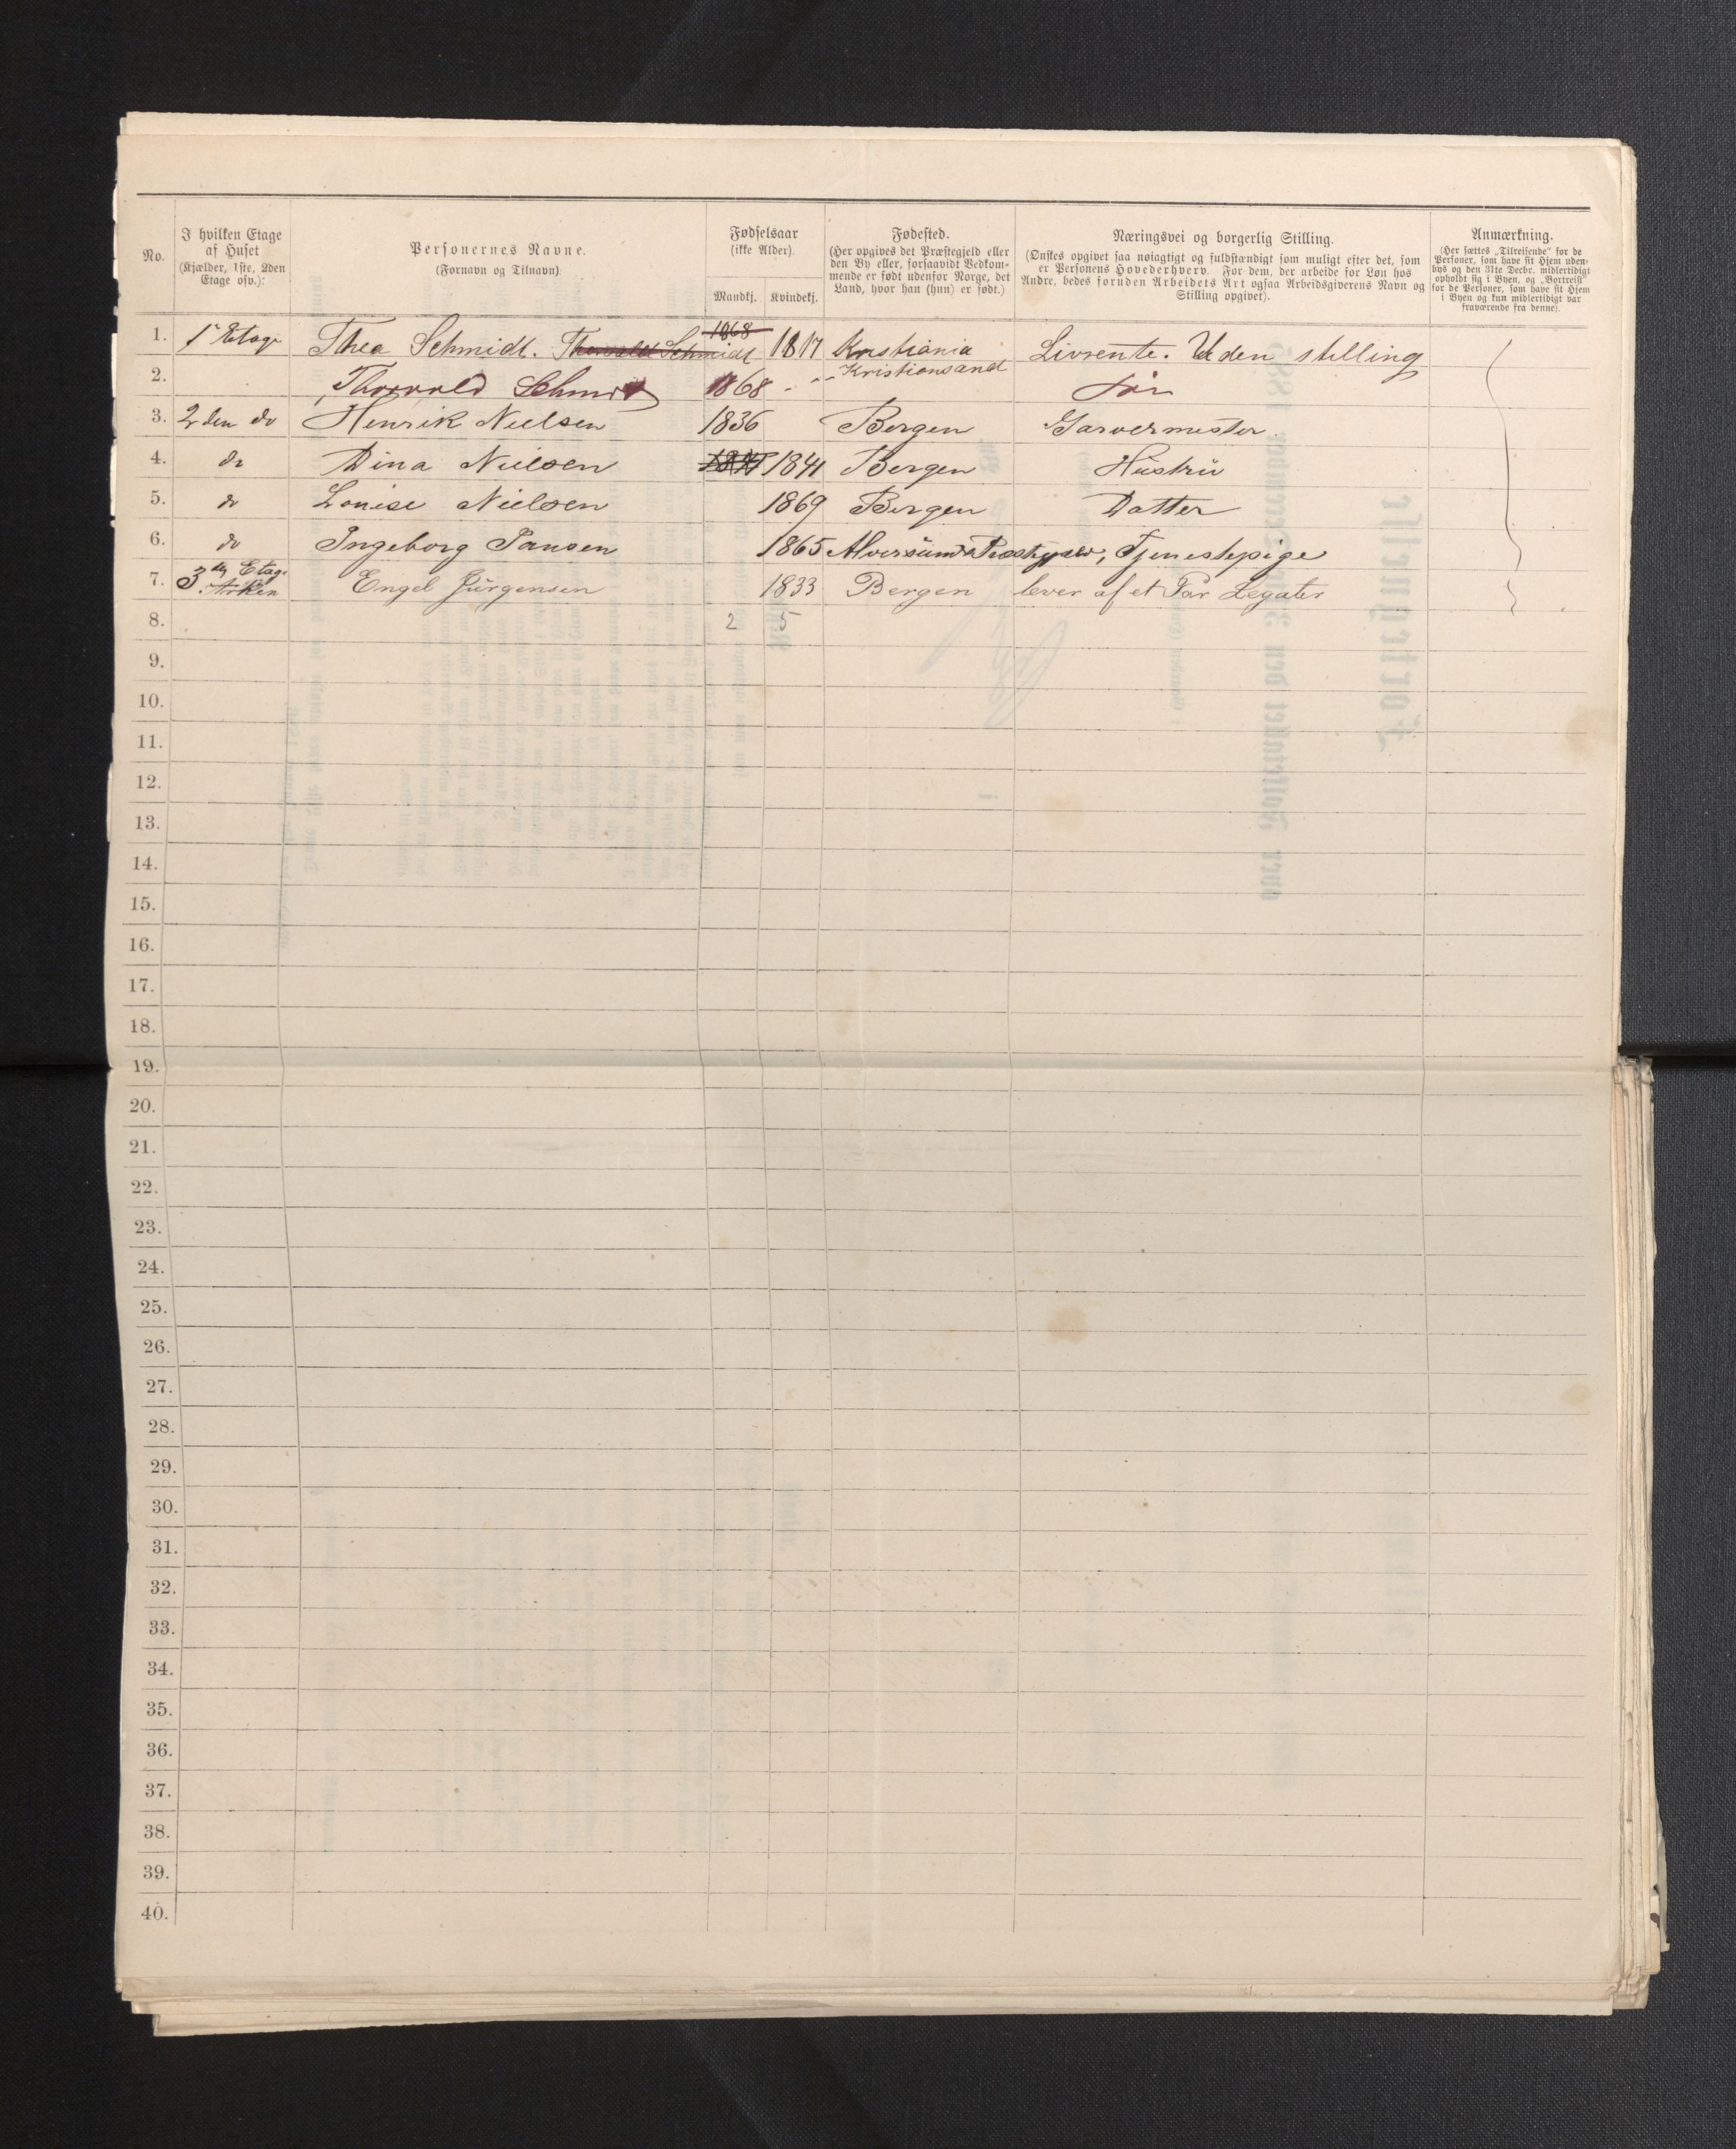 No. I hvilken Etage af Huset (Kjælder, 1ste, 2den Etage osv.): Personernes Navne. (Fornavn og Tilnavn) Fødselsaar (ikke Alder). Mandkj. Kvindekj. Fødested. (Her opgives det Præstegjeld eller den By eller, forsaavidt Vedkommende er født udenfor Norge, det Land, hvor han (hun) er født.) Næringsvei og borgerlig Stilling. (Ønskes opgivet saa nøiagtigt og fuldstændigt som muligt efter det, som er Personens Hovederhverv. For dem, der arbeide for Løn hos Andre, bedes foruden Arbeidets Art ogsaa Arbeidsgiverens Navn og Stilling opgivet). Anmærkning. (Her sættes „Tilreisende" for de Personer, som have sit Hjem udenbys og den 31te Decbr. midlertidigt opholdt sig i Byen, og „Bortreist" for de Personer, som have sit Hjem i Byen og kun midlertidigt var fraværende fra denne).
1. 1 Etage Thea Schmidt. Thorvald Schmidt 1868 1817 Kristiania Livrente. Uden stilling
2. Thorvald Schmidt 1868 Kristiansand Søn
3. 2den do Henrik Nielsen 1836 Bergen Garvermester.
4. do Dina Nielsen 1841 1841 Bergen Hustru
5. do Louise Nielsen 1869 Bergen Datter
6. do Ingeborg Jansen 1865 Alversund Tjenestepige
7. 3 Etage Engel Jürgensen 1833 Bergen lever af et Par Legater
8. 2 5
9.
10.
11.
12.
13.
14.
15.
16.
17.
18.
19.
20.
21.
22.
23.
24.
25.
26.
27.
28.
29.
30.
31.
32.
33.
34.
35.
36.
37.
38.
39.
40.